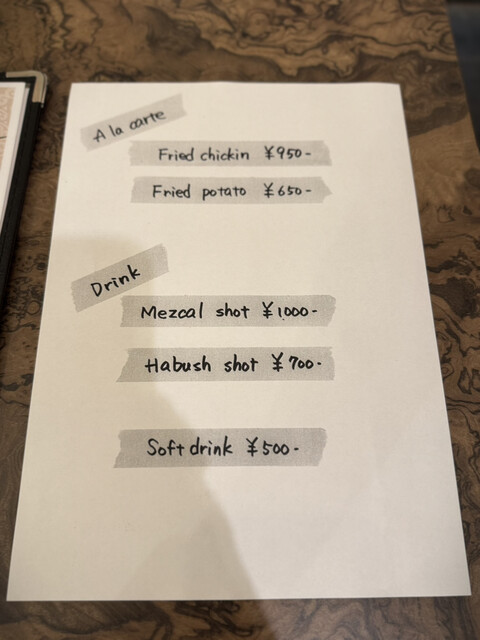 A la carte
Fried chickin ¥950-
Fried potato ¥650-
Drink
Mezcal shot ¥1000-
Habush shot ¥700-
Soft drink ¥500-